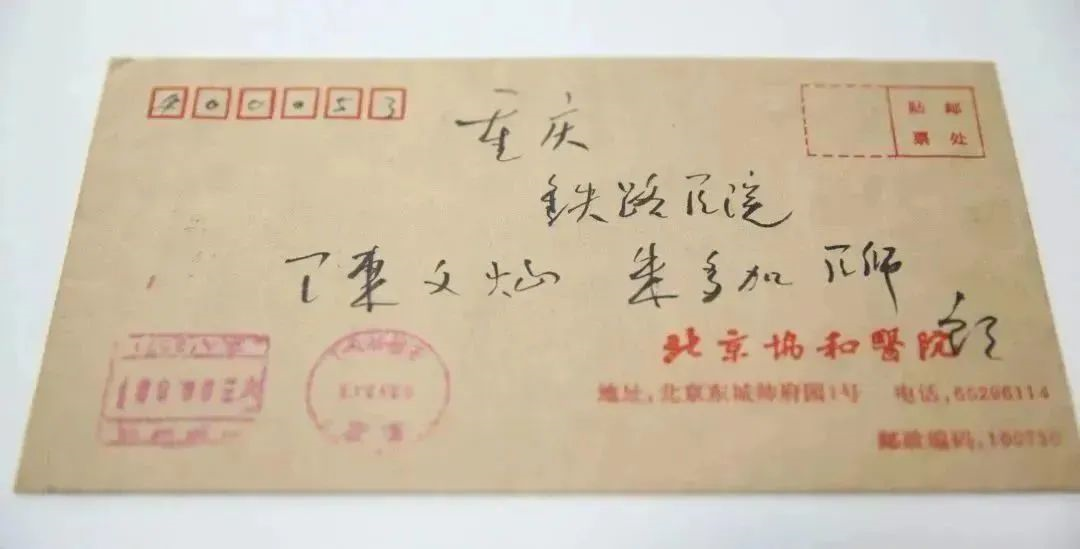 400053
贴邮
票处
重庆
铁路医院
陈文灿 朱多加 医师
北京协和醫院
地址:北京东城帅府园1号 电话:65296114
邮政编码:100730